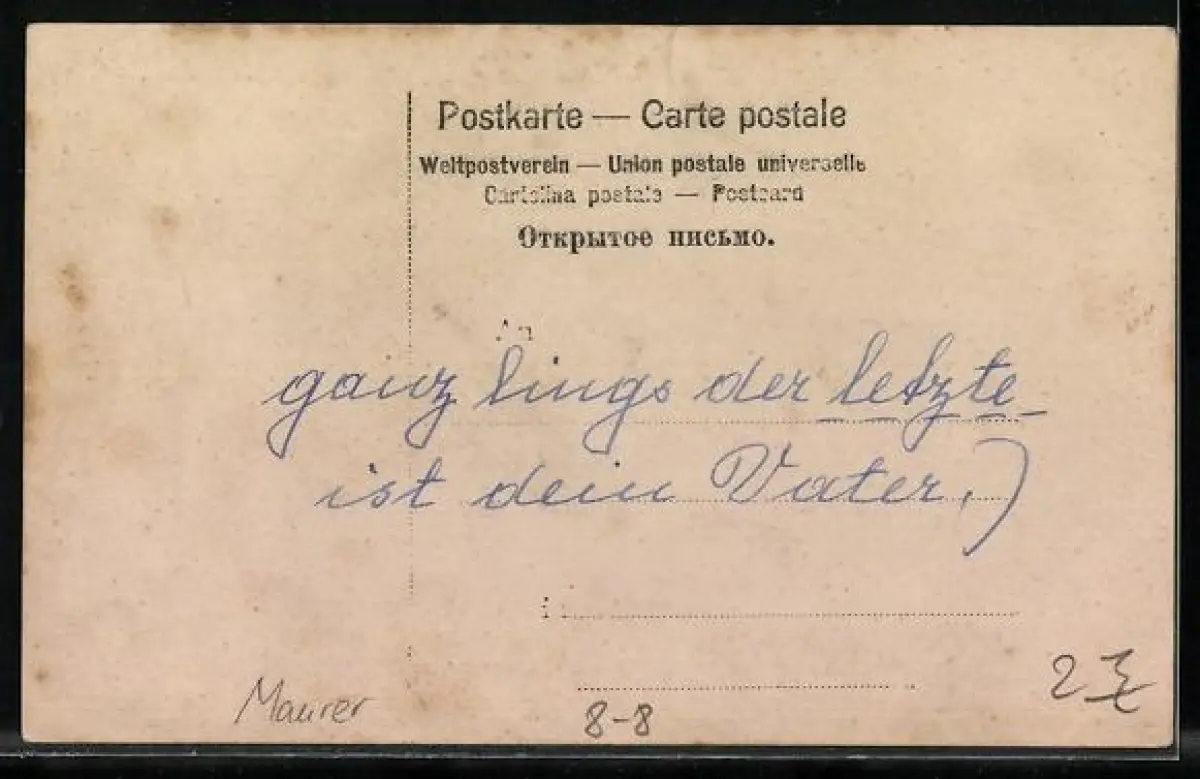 Postkarte — Carte postale
Weltpostverein — Union postale universelle
Cartolina postale — Postcard
Открытое письмо.
An
ganz lings der letzte
ist dein Vater.)
Maurer
8-8
2